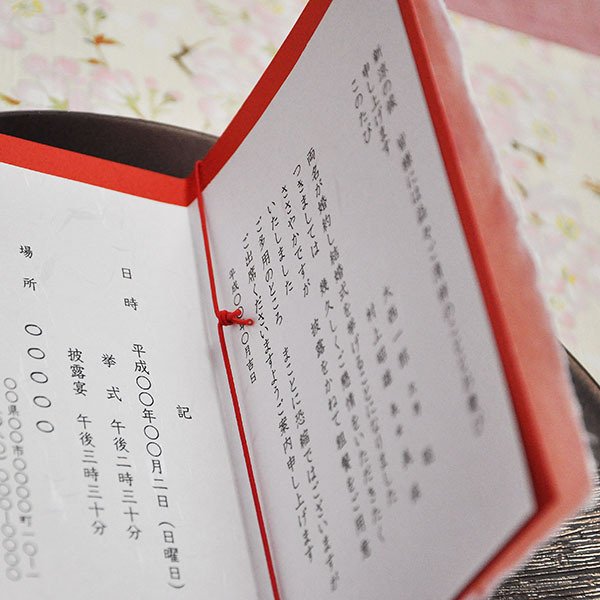 新涼の候　皆様には
申し上げます
このたび
両名が婚約し結婚式を挙げることになりました
つきましては　幾久しくご懇情をいただきたく
ささやかですが　披露をかねて粗餐をご用意
いたしました
ご多用のところ　まことに恐縮ではございますが
ご出席くださいますようご案内申し上げます
平成〇〇年〇月吉日
記
日時　平成〇〇年〇〇月二日（日曜日）
挙式　午後二時三十分
披露宴　午後三時三十分
場所　〇〇〇〇〇
〇〇県〇〇市〇〇〇〇町二〇-二